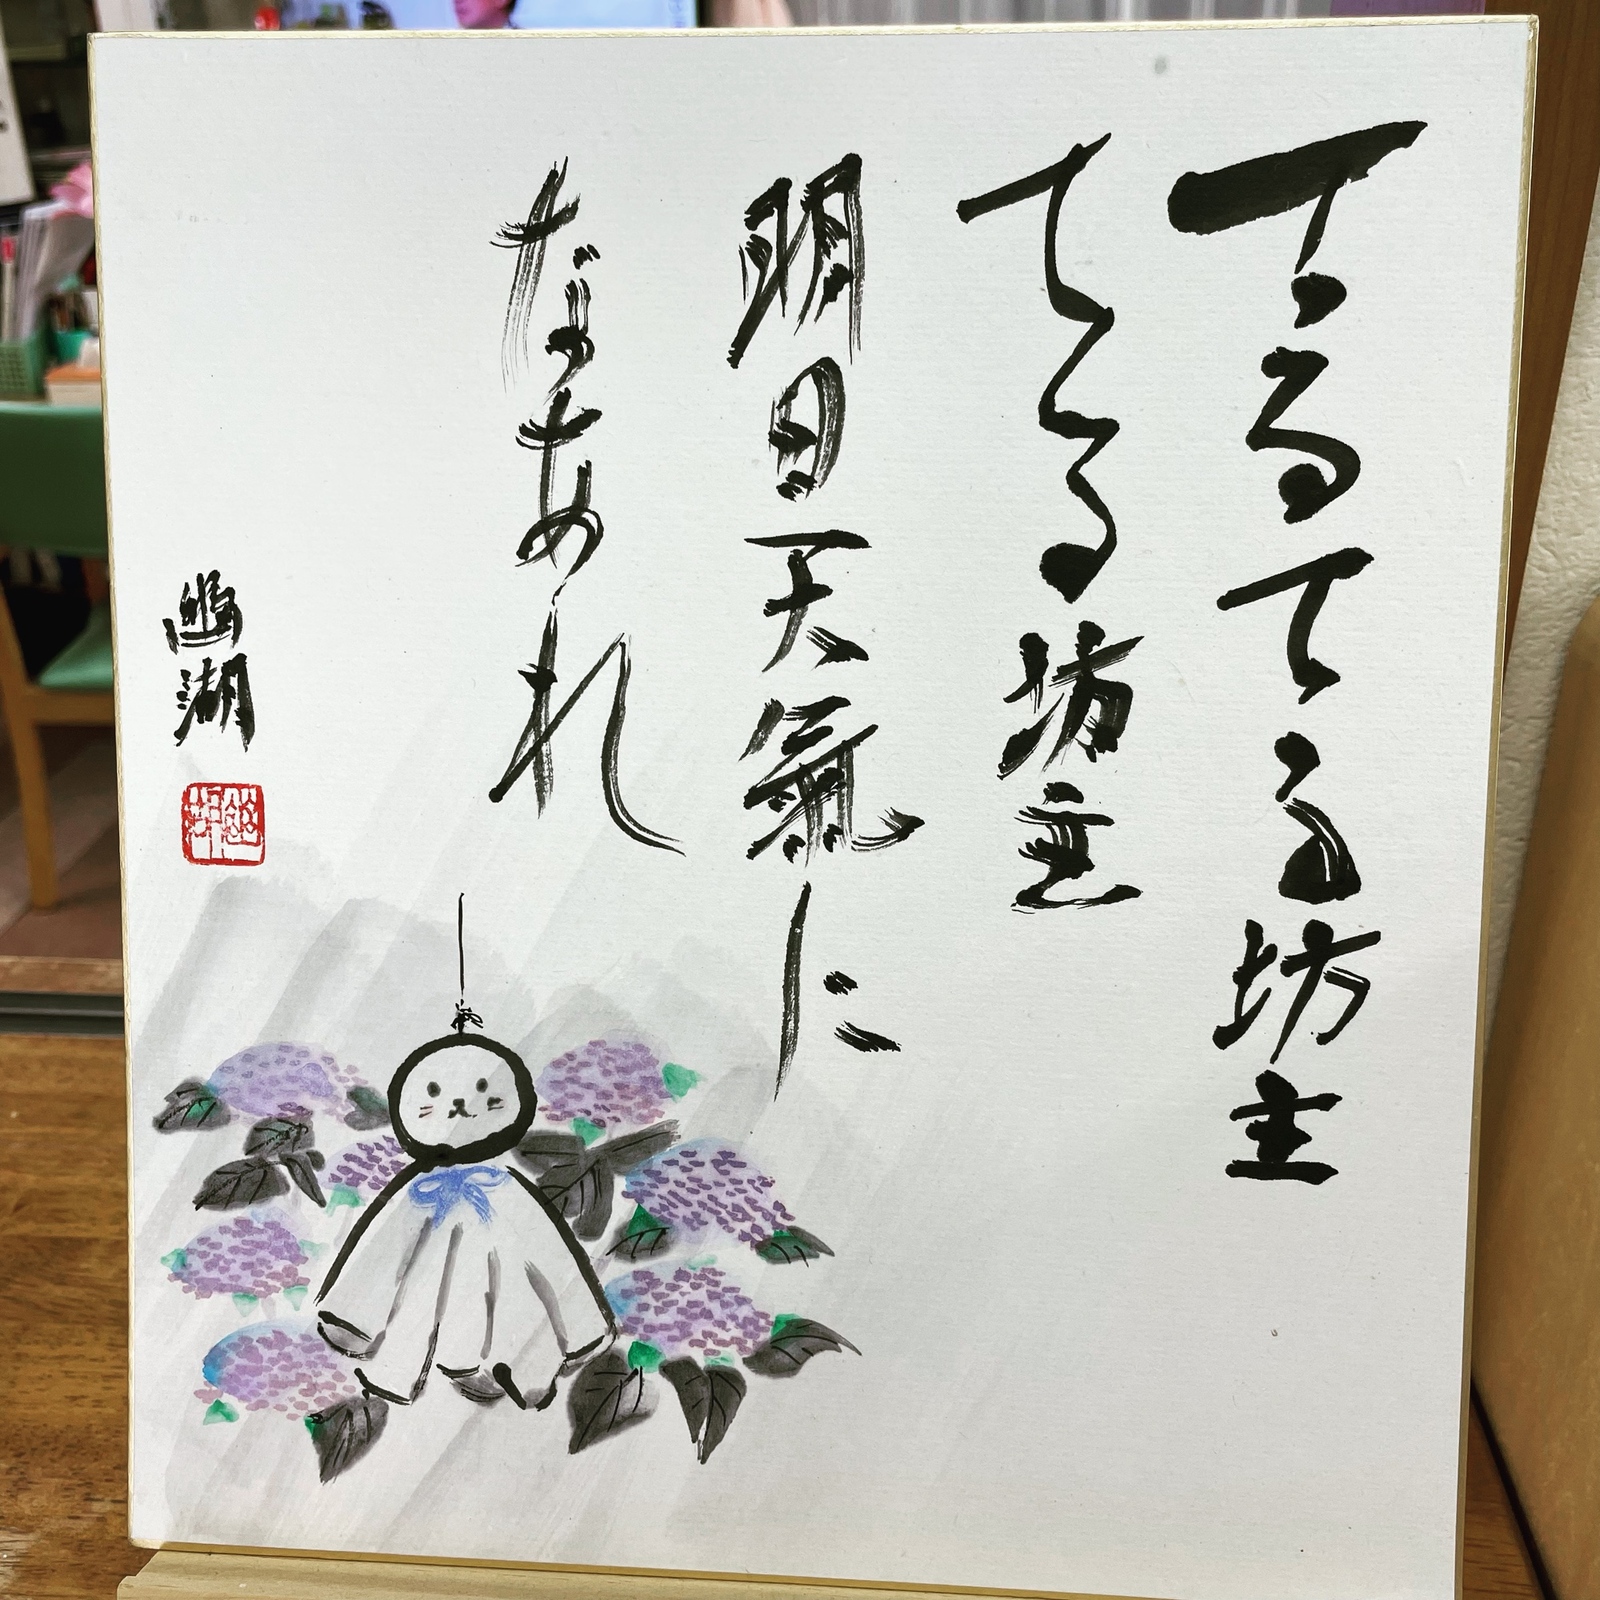 てるてる坊主
てる坊主
明日天氣に
なあれ
幽湖